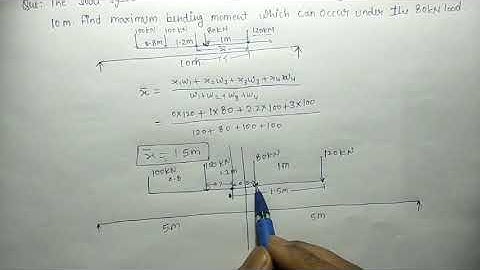 Que: The load system
10m. Find maximum bending moment which can occur under the 80kN load.
100kN 100kN 80kN 120kN
0.8m 1.2m 1m
x̄
10m
x̄ = x₁w₁ + x₂w₂ + x₃w₃ + x₄w₄
w₁ + w₂ + w₃ + w₄
= 0x120 + 1x80 + 2.2x100 + 3x100
120 + 80 + 100 + 100
x̄ = 1.5m
100kN 100kN 80kN 120kN
0.8 1.2m 1m
1.5m
5m 5m